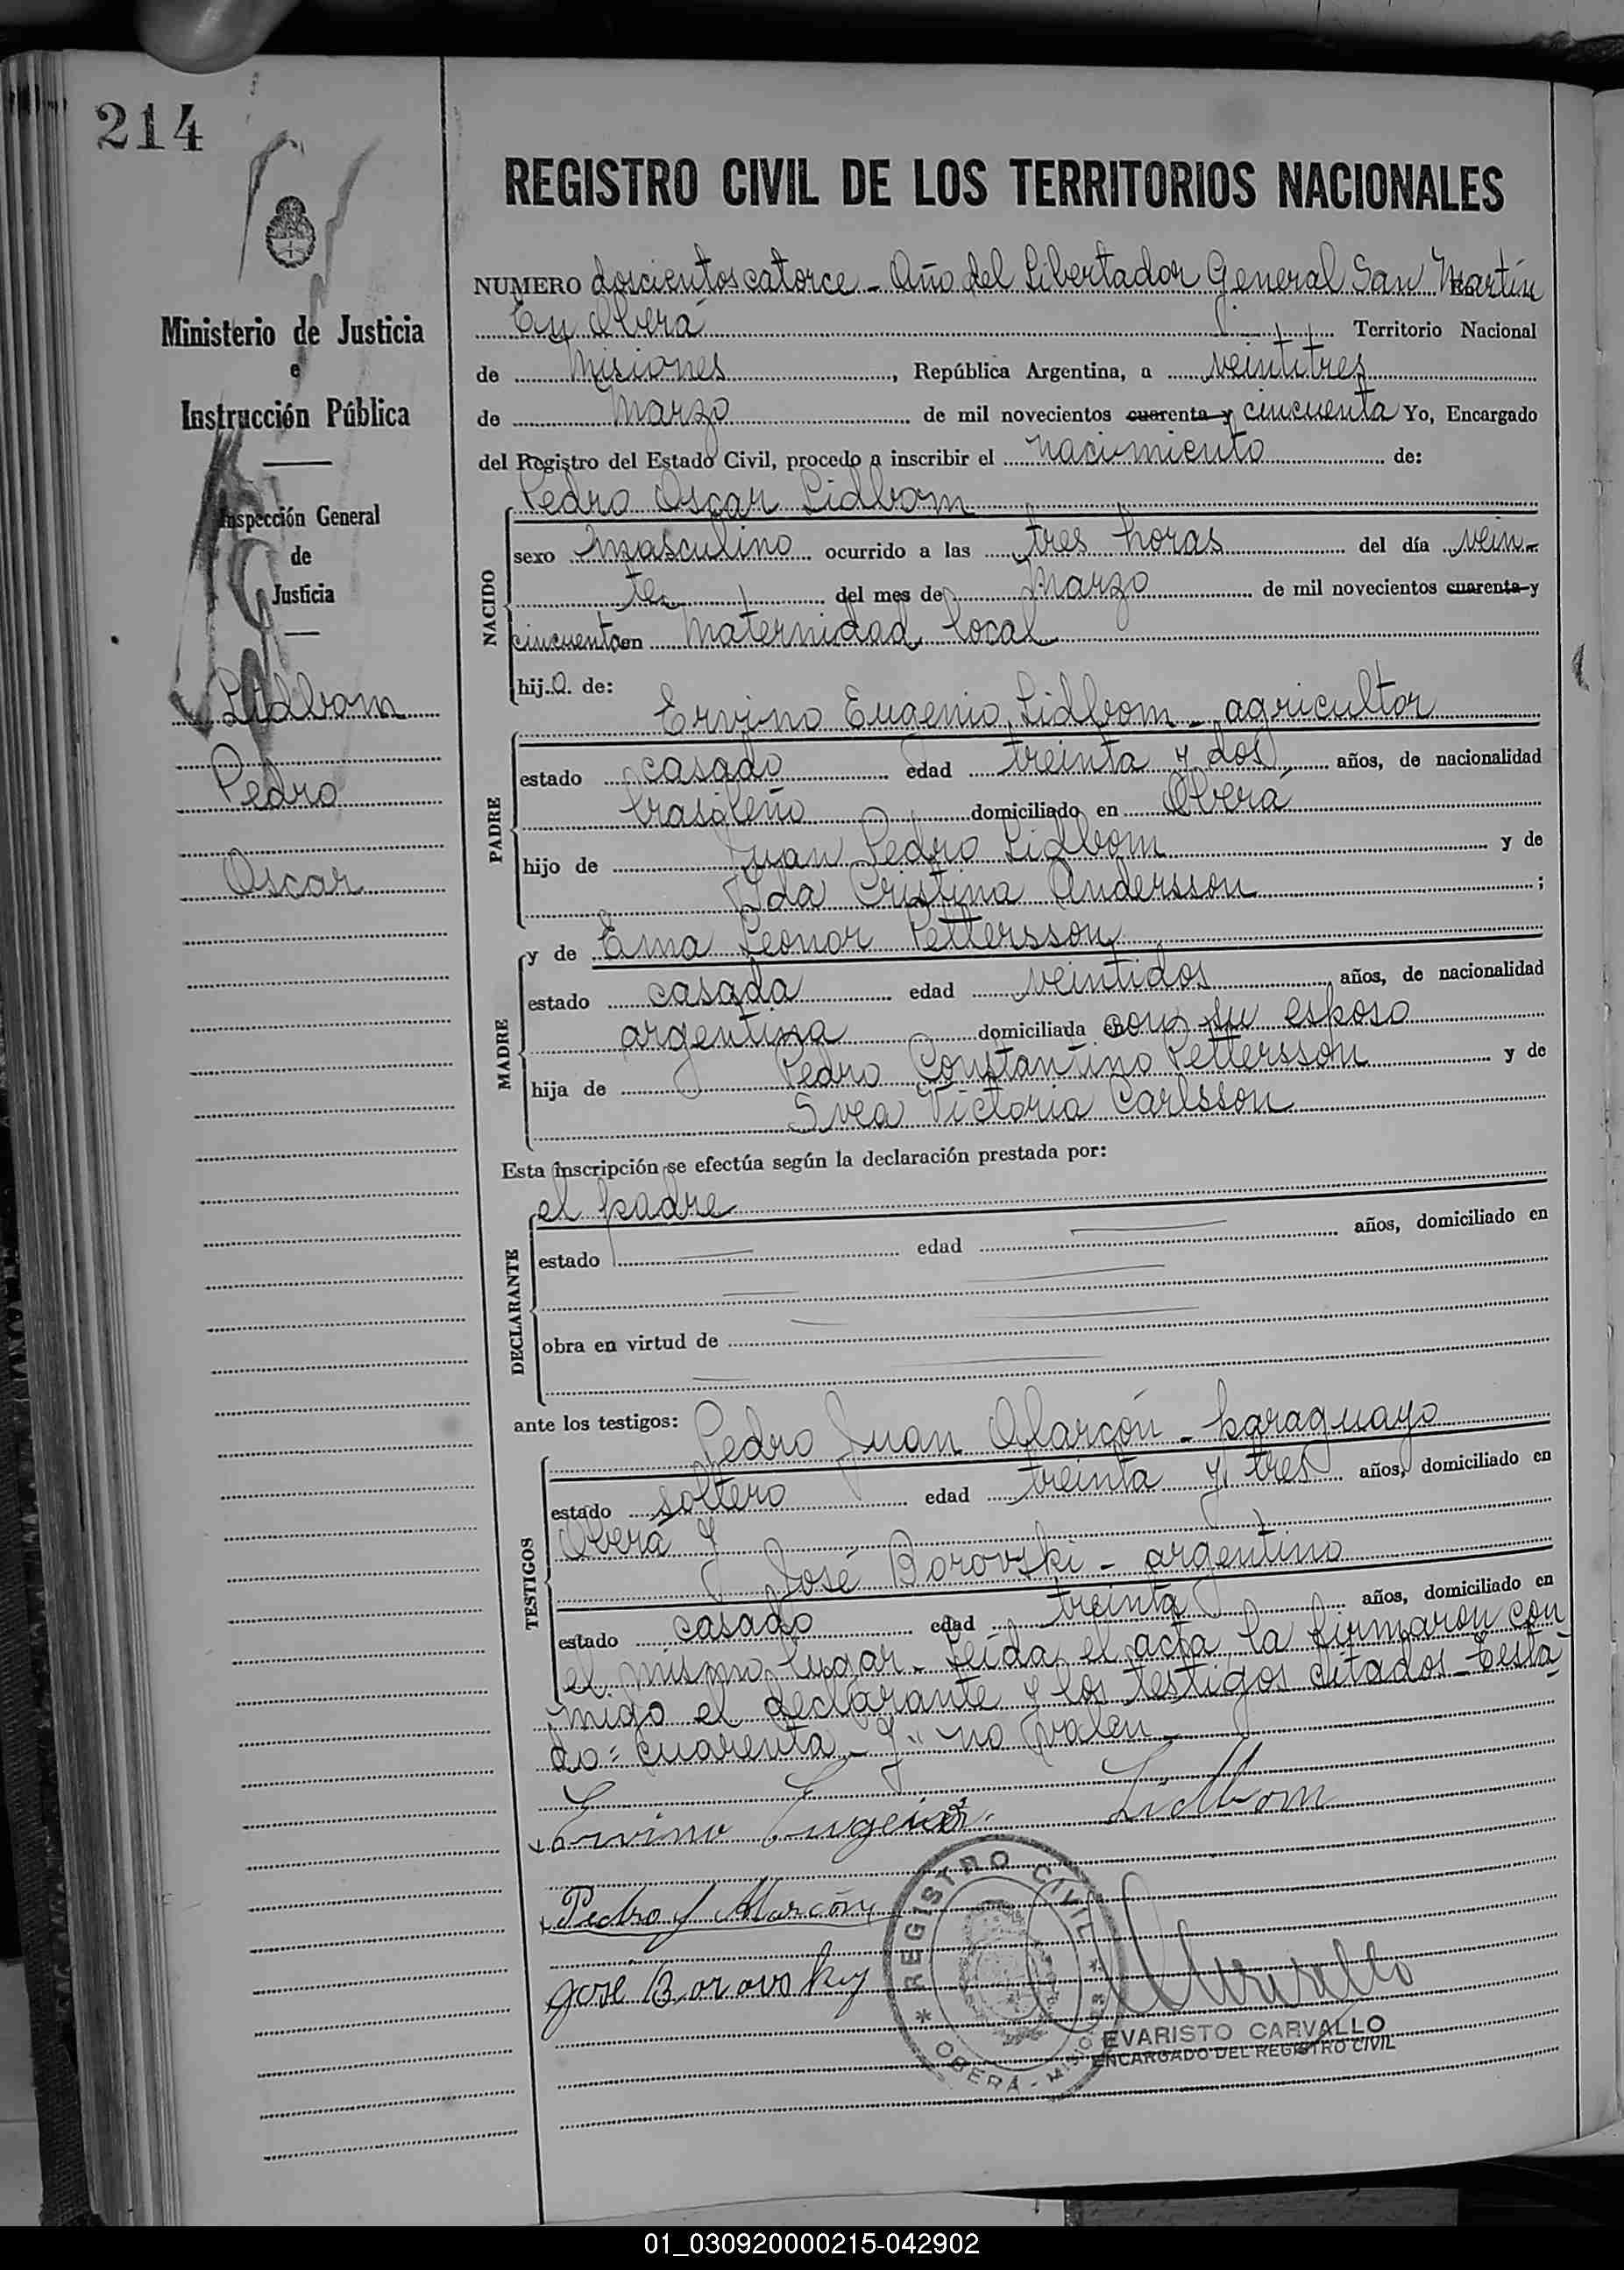 214
Ministerio de Justicia
e
Instrucción Pública
Inspección General
de
Justicia
Lidbom
Pedro
Oscar
REGISTRO CIVIL DE LOS TERRITORIOS NACIONALES
NUMERO doscientos catorce - Año del Libertador General San Martín
En Oberá Territorio Nacional
de Misiones, República Argentina, a veintitres
de Marzo de mil novecientos cuarenta y cincuenta Yo, Encargado
del Registro del Estado Civil, procedo a inscribir el nacimiento de:
Pedro Oscar Lidbom
NACIDO
sexo masculino ocurrido a las tres horas del día vein-
te del mes de Marzo de mil novecientos cuarenta y
cincuenta en Maternidad local
hij.o. de:
Ervino Eugenio Lidbom - agricultor
PADRE
estado casado edad treinta y dos años, de nacionalidad
brasileño domiciliado en Oberá
hijo de Juan Pedro Lidbom y de
Ida Cristina Andersson ;
y de Ema Leonor Pettersson
MADRE
estado casada edad veintidos años, de nacionalidad
argentina domiciliada en con su esposo
hija de Pedro Constantino Pettersson y de
Svea Victoria Carlsson
Esta inscripción se efectúa según la declaración prestada por:
el padre
DECLARANTE
estado edad años, domiciliado en
obra en virtud de
ante los testigos:
Pedro Juan Alarcón - paraguayo
TESTIGOS
estado soltero edad treinta y tres años, domiciliado en
Oberá y
José Borovski - argentino
estado casado edad treinta años, domiciliado en
el mismo lugar - Leída el acta la firmaron con
migo el declarante y los testigos citados - Testa-
do: cuarenta - y" no valen -
Ervino Eugenio Lidbom
Pedro J Alarcón
José Borovsky
REGISTRO CIVIL
* OBERÁ - MISIONES *
EVARISTO CARVALLO
ENCARGADO DEL REGISTRO CIVIL
01_030920000215-042902